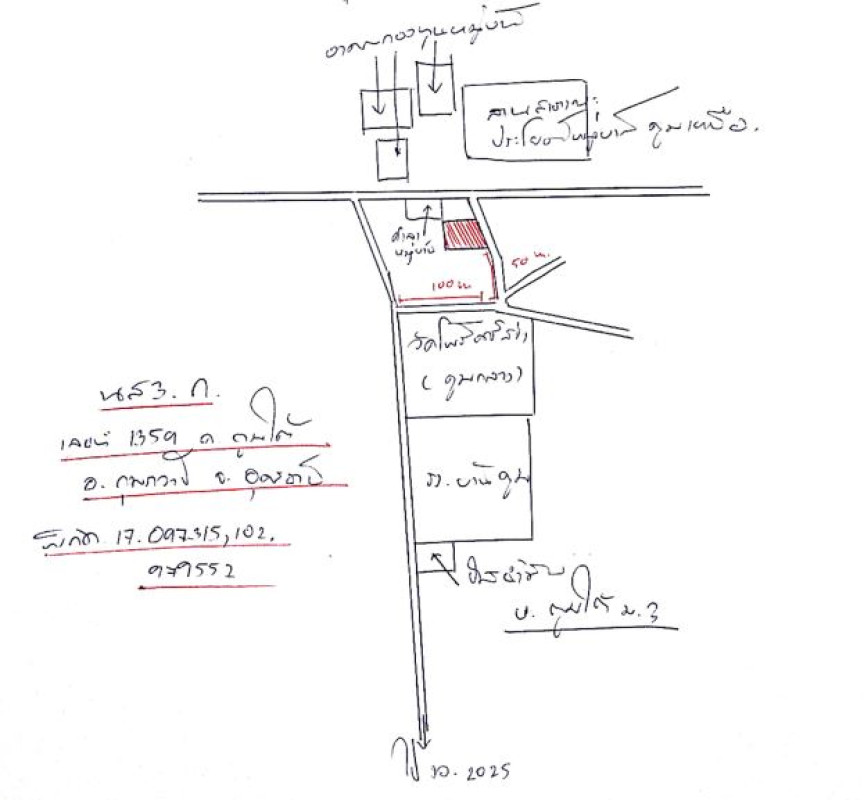 อาคารกองทุนหมู่บ้าน
ลานสาธารณะ
ประโยชน์หมู่บ้าน ตูมเหนือ.
ศาลา
หมู่บ้าน
50 ม.
100 ม.
วัดโพธิ์ศรีสง่า
( ตูมกลาง)
นส3. ก.
เลขที่ 1359 ต. ตูมใต้
อ. กุมภวาปี จ. อุดรธานี
ร.ร. บ้านตูม
พิกัด 17.097315,102.
979552
บ. ตูมใต้ ม.3
ไป 2025